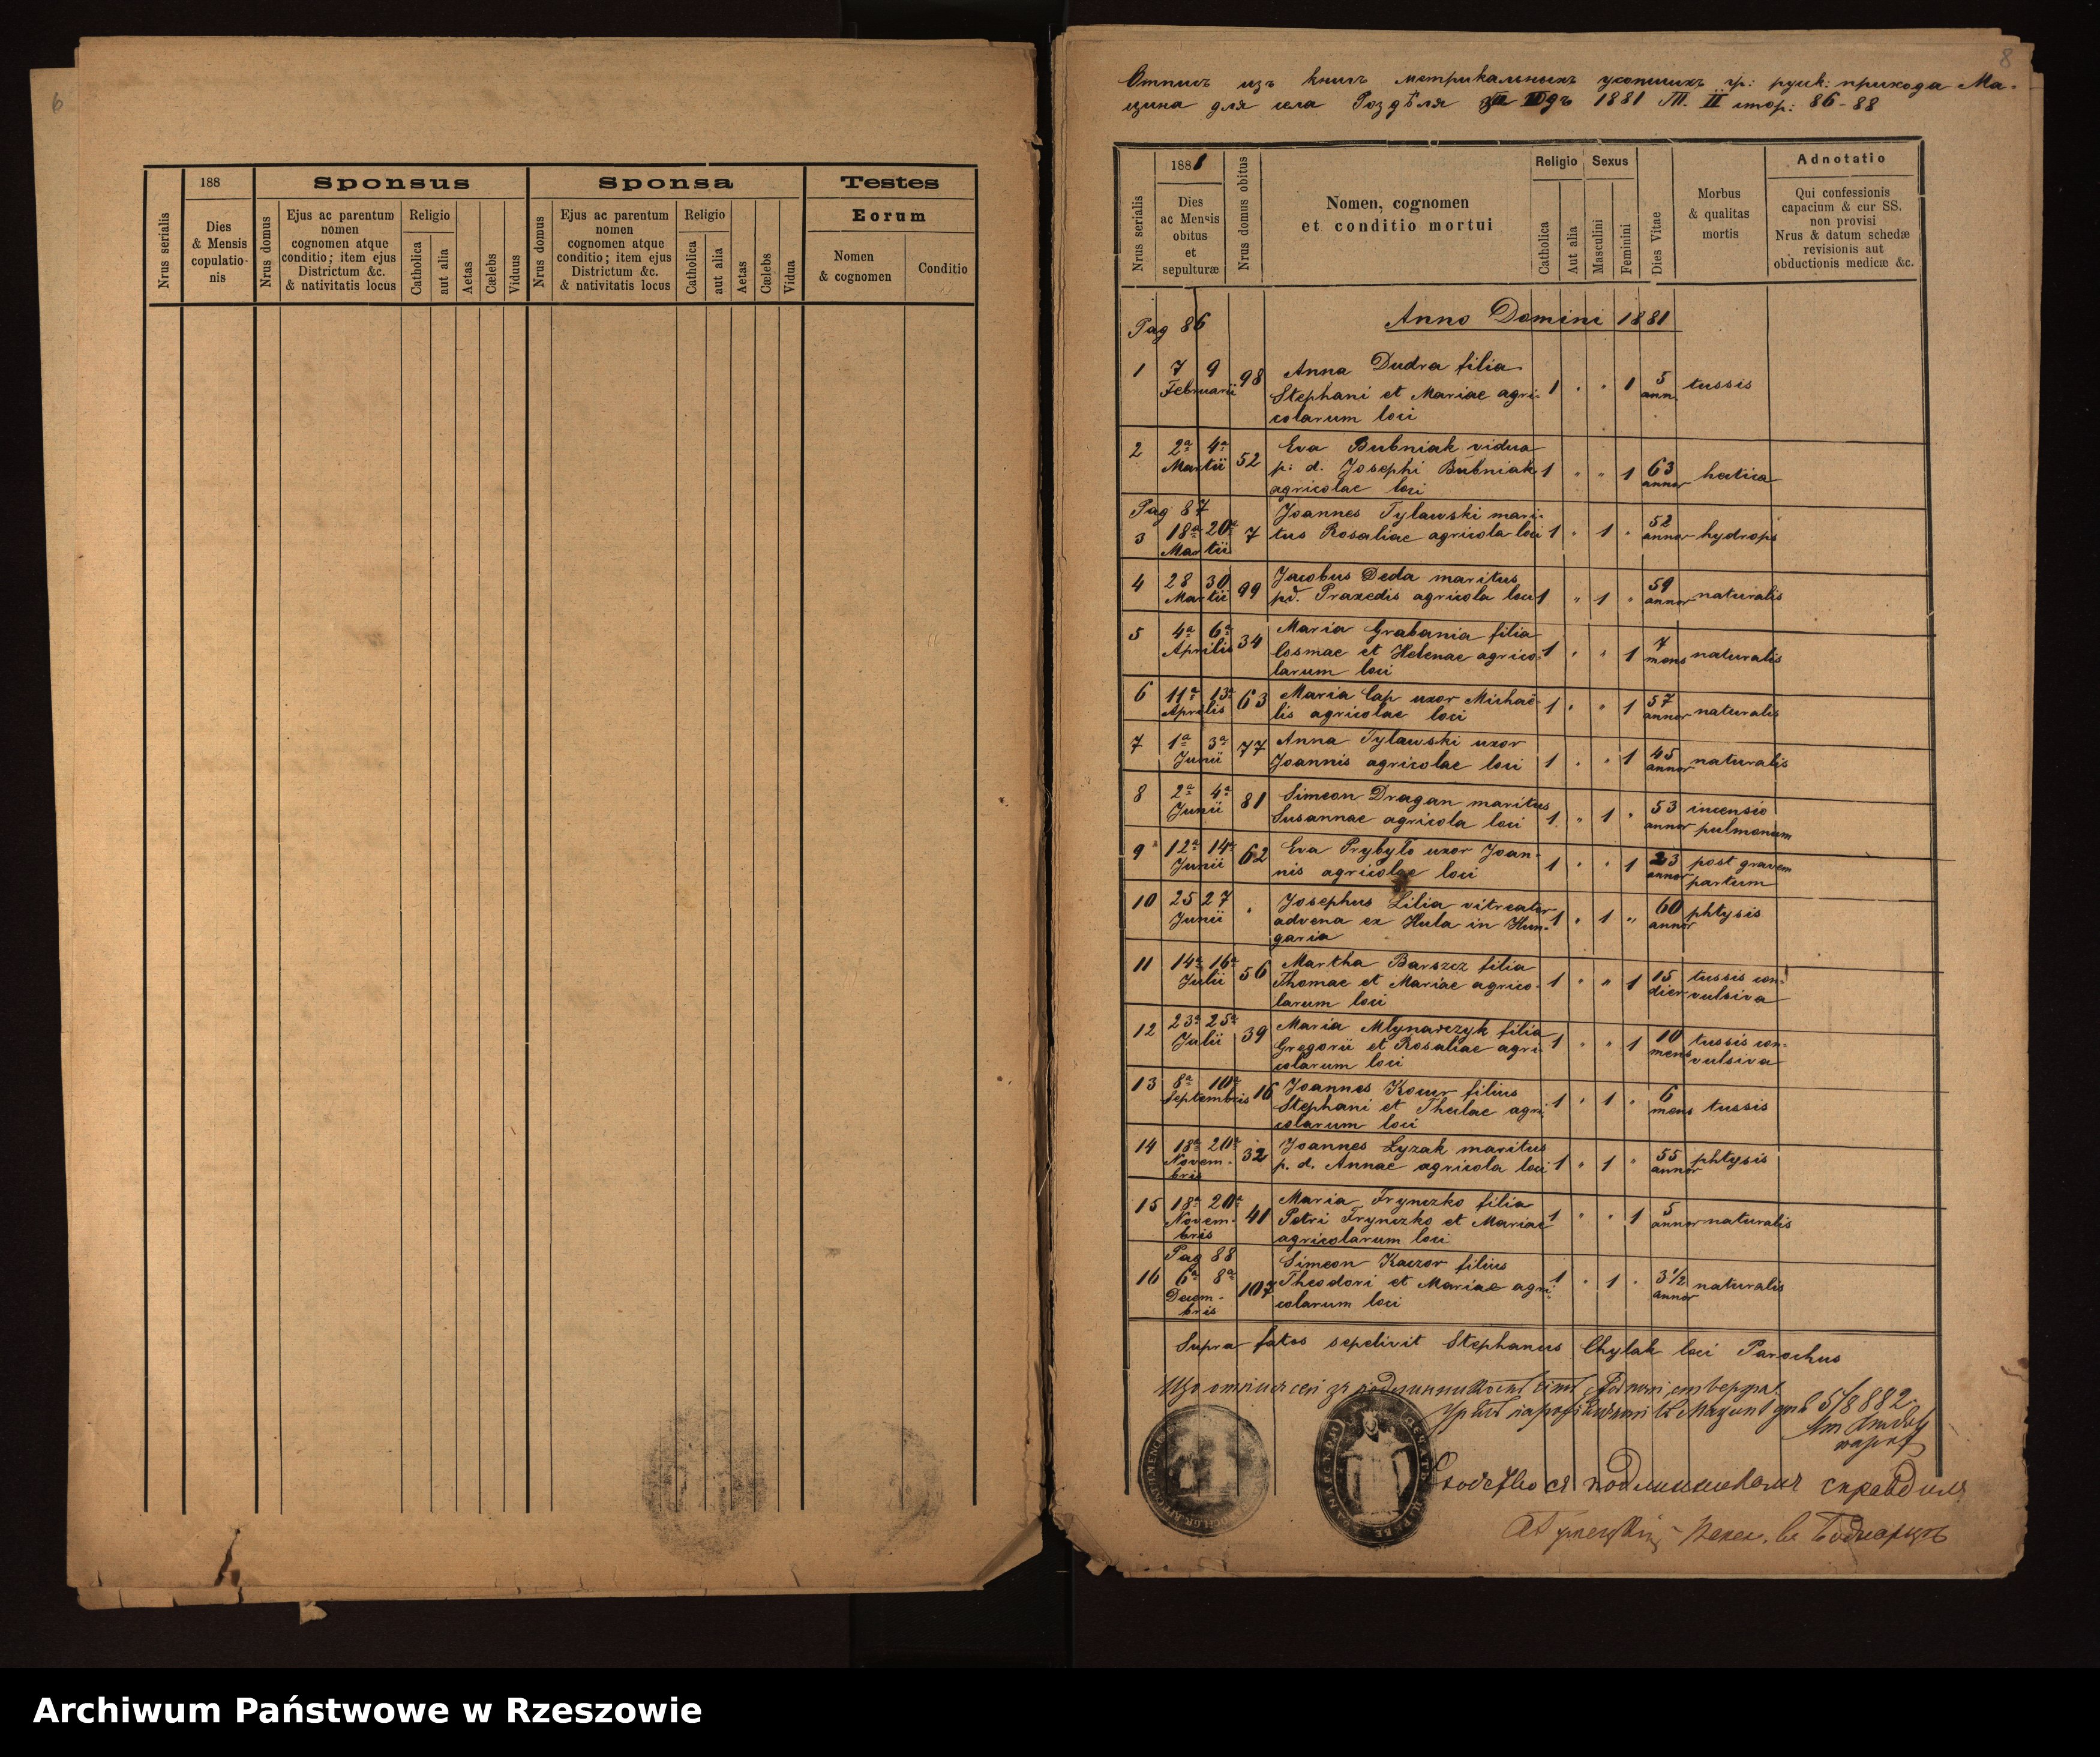 6
188
Sponsus
Sponsa
Testes
Nrus serialis
Dies
& Mensis
copulatio-
nis
Nrus domus
Ejus ac parentum
nomen
cognomen atque
conditio; item ejus
Districtum &c.
& nativitatis locus
Religio
Catholica
aut alia
Aetas
Cælebs
Viduus
Nrus domus
Ejus ac parentum
nomen
cognomen atque
conditio; item ejus
Districtum &c.
& nativitatis locus
Religio
Catholica
aut alia
Aetas
Cælebs
Vidua
Eorum
Nomen
& cognomen
Conditio
8
Отпись изъ книгъ метрикальныхъ усопшихъ гр: руск: прихода Ма-
цина для села Роздѣля 1881 Т. II стор: 86-88
Nrus serialis
1881
Dies
ac Mensis
obitus
et
sepulturæ
Nrus domus obitus
Nomen, cognomen
et conditio mortui
Religio
Catholica
Aut alia
Sexus
Masculini
Feminini
Dies Vitae
Morbus
& qualitas
mortis
Adnotatio
Qui confessionis
capacium & cur SS.
non provisi
Nrus & datum schedæ
revisionis aut
obductionis medicæ &c.
Pag 86 Anno Domini 1881
1 7 9 98 Anna Dudra filia
Februarii Stephani et Mariae agri- 1 " " 1 5 ann. tussis
colarum loci
2 2a 4a 52 Eva Bubniak vidua
Martii p: d. Josephi Bubniak 1 " " 1 63 annor hectica
agricolae loci
Pag 87 Joannes Tylawski mari-
3 18a 20a 7 tus Rosaliae agricola loci 1 " 1 " 52 annor hydrops
Martii
4 28 30 99 Jacobus Deda maritus
Martii pd. Praxedis agricola loci 1 " 1 " 59 annor naturalis
5 4a 6a 34 Maria Grabania filia
Aprilis Cosmae et Helenae agrico- 1 " " 1 7 mens naturalis
larum loci
6 11a 13a 63 Maria Cap uxor Michaë-
Aprilis lis agricolae loci 1 " " 1 57 annor naturalis
7 1a 3a 77 Anna Tylawski uxor
Junii Joannis agricolae loci 1 " " 1 45 annor naturalis
8 2a 4a 81 Simeon Dragan maritus
Junii Susannae agricola loci 1 " 1 " 53 annor incensio pulmonum
9 12a 14a 62 Eva Prybylo uxor Joan-
Junii nis agricolae loci 1 " " 1 23 annor post gravem partum
10 25 27 " Josephus Lilia vitreator
Junii advena ex Hula in Hun- 1 " 1 " 60 annor phtysis
garia
11 14a 16a 56 Martha Barszcz filia
Julii Thomae et Mariae agrico- 1 " " 1 15 dier tussis con- vulsiva
larum loci
12 23a 25a 39 Maria Mlynarczyk filia
Julii Gregorii et Rosaliae agri- 1 " " 1 10 mens tussis con- vulsiva
colarum loci
13 8a 10a 16 Joannes Kocur filius
Septembris Stephani et Theclae agri- 1 " 1 " 6 mens tussis
colarum loci
14 18a 20a 32 Joannes Łyzak maritus
Novem- p. d. Annae agricola loci 1 " 1 " 55 annor phtysis
bris
15 18a 20a 41 Maria Frynczko filia
Novem- Petri Frynczko et Mariae 1 " " 1 5 annor naturalis
bris agricolarum loci
Pag 88 Simeon Kaczor filius
16 6a 8a 107 Theodori et Mariae agri- 1 " 1 " 3 1/2 annor naturalis
Decem- colarum loci
bris
Supra fatos sepelivit Stephanus Chylak loci Parochus
5/1 882.
Archiwum Państwowe w Rzeszowie